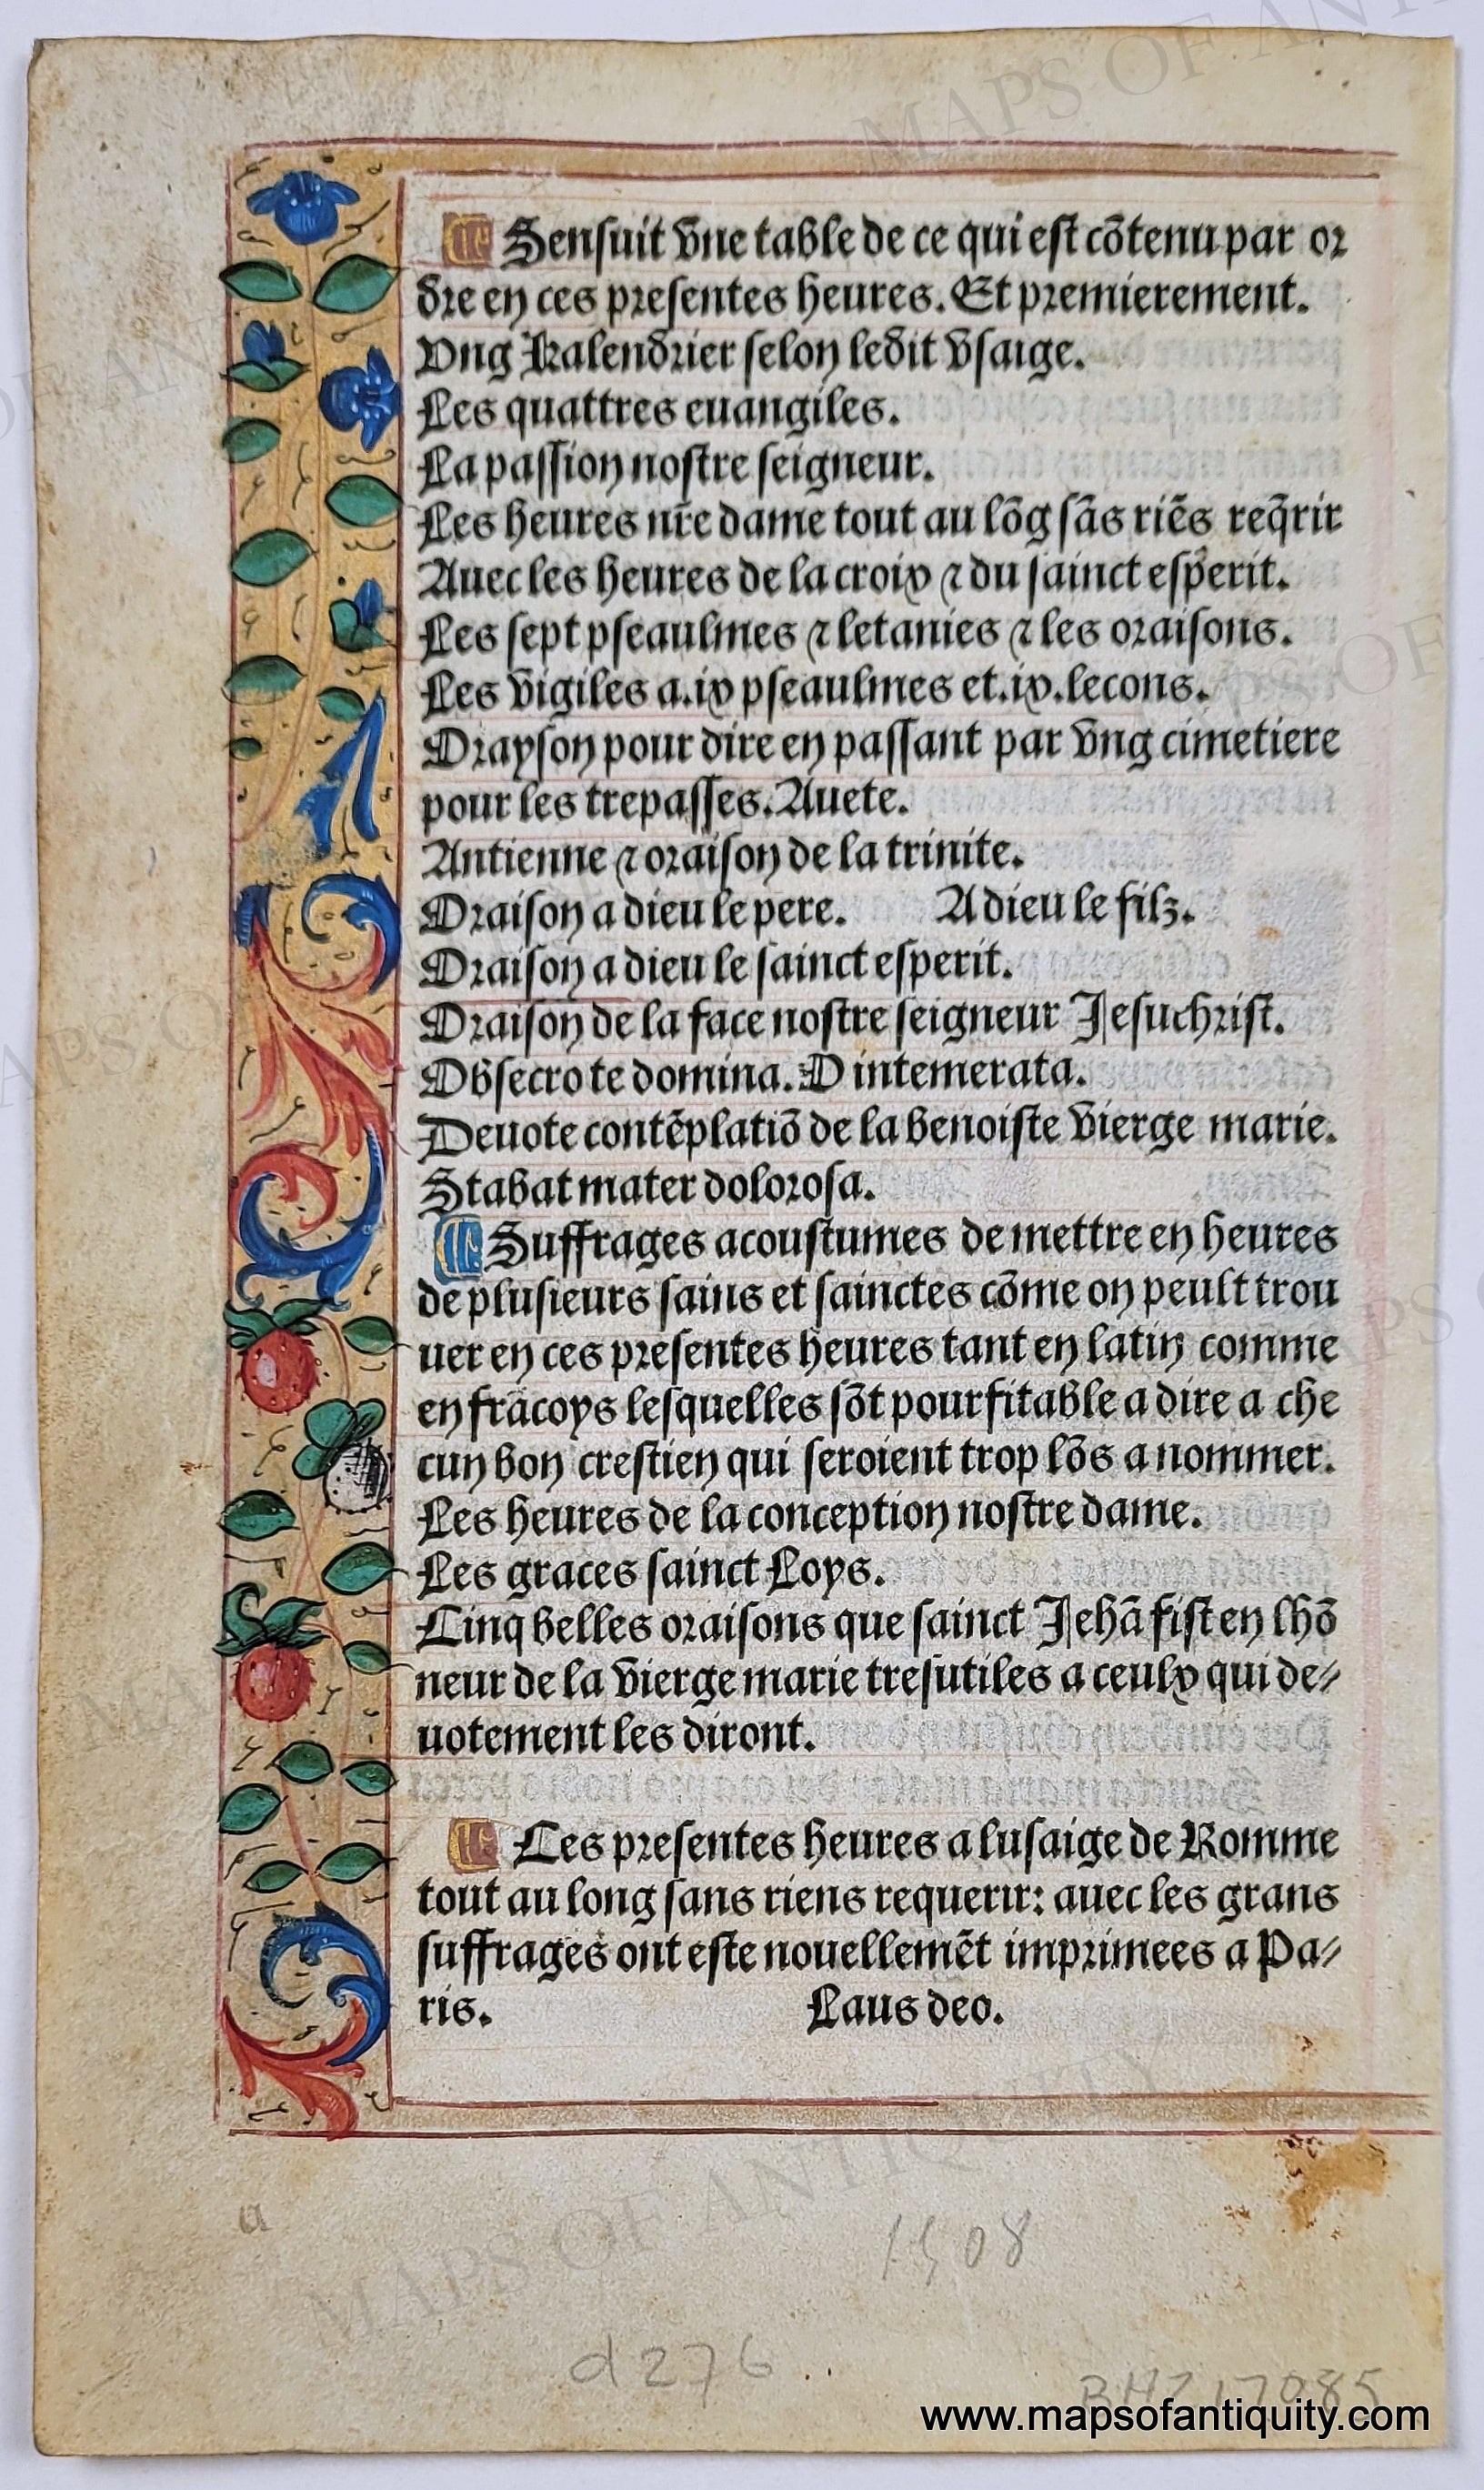 ¶ Sensuit vne table de ce qui est cōtenu par or
dre en ces presentes heures. Et premierement.
Vng kalendrier selon ledit vsaige.
Les quattres euangiles.
La passion nostre seigneur.
Les heures nr̄e dame tout au lōg sās riēs req̄rir
Auec les heures de la croix ⁊ du sainct esperit.
Les sept pseaulmes ⁊ letanies ⁊ les oraisons.
Les vigiles a.ix pseaulmes et.ix.lecons.
Orayson pour dire en passant par vng cimetiere
pour les trepasses. Auete.
Antienne ⁊ oraison de la trinite.
Oraison a dieu le pere. A dieu le filz.
Oraison a dieu le sainct esperit.
Oraison de la face nostre seigneur Jesuchrist.
Obsecro te domina. O intemerata.
Deuote contēplatiō de la benoiste vierge marie.
Stabat mater dolorosa.
¶ Suffrages acoustumes de mettre en heures
de plusieurs sains et sainctes cōme on peult trou
uer en ces presentes heures tant en latin comme
en frācoys lesquelles sōt pourfitable a dire a che
cun bon crestien qui seroient trop lōs a nommer.
Les heures de la conception nostre dame.
Les graces sainct Loys.
Cinq belles oraisons que sainct Jehā fist en lhō
neur de la vierge marie tresutiles a ceulx qui de⸗
uotement les diront.
¶ Ces presentes heures a lusaige de Romme
tout au long sans riens requerir: auec les grans
suffrages ont este nouellemēt imprimees a Pa⸗
ris. Laus deo.
a
1508
d276
BHZ17085
www.mapsofantiquity.com
MAPS OF ANTIQUITY